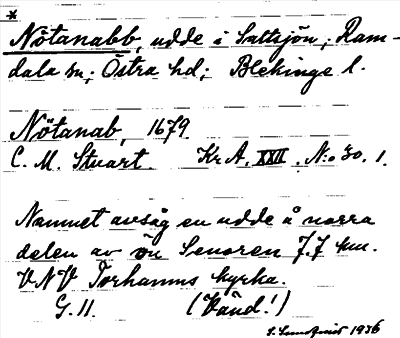 *
Nötanabb, udde i Saltsjön; Ram-
dala sn; Östra hd; Blekinge l.
Nötanab, 1679.
C. M. Stuart. Kr A. XXII. N:o 30. 1.
Namnet avsåg en udde å norra
delen av ön Senoren 7,7 km.
VNV Torhamns kyrka.
G. 11. (Vänd!)
S. Sundqvist 1936